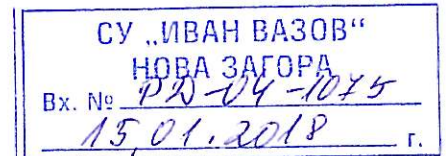 СУ „ИВАН ВАЗОВ“
НОВА ЗАГОРА
Вх. № РД-04-1075
15.01.2018 г.